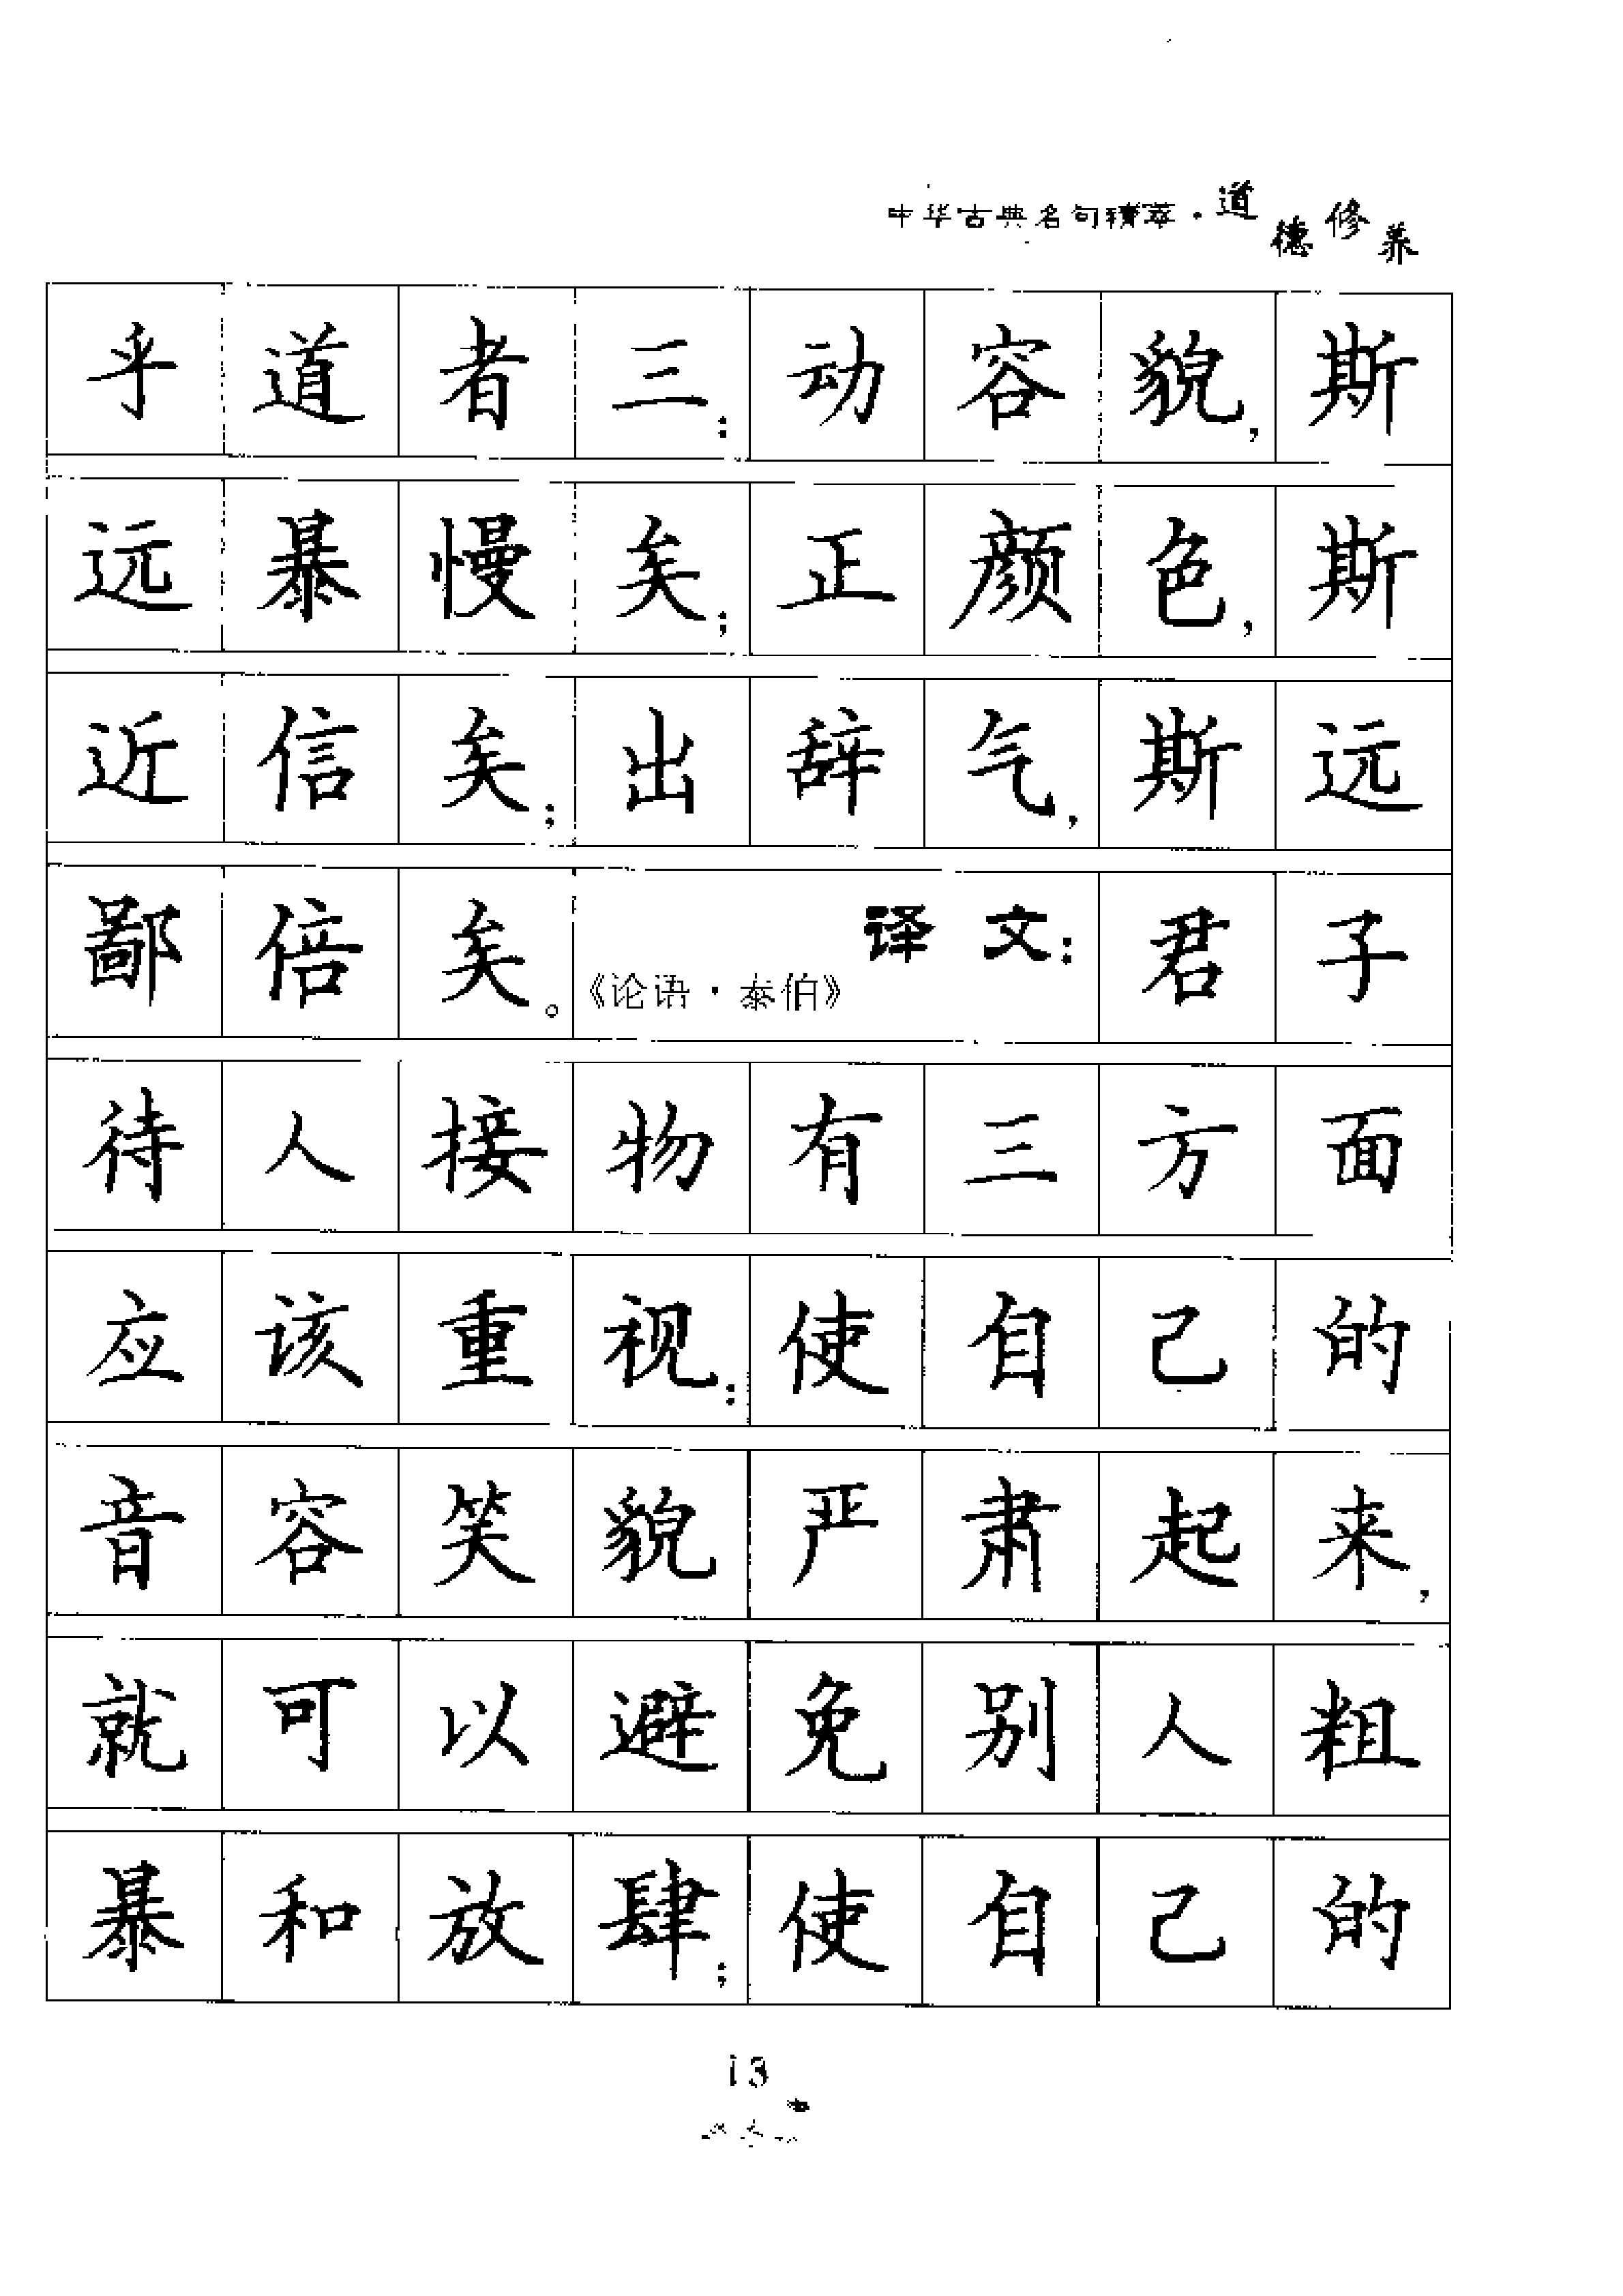 中华古典名句精萃·道德修养
乎道者三:动容貌,斯
远暴慢矣;正颜色,斯
近信矣;出辞气,斯远
鄙倍矣。《论语·泰伯》译文:君子
待人接物有三方面
应该重视:使自己的
音容笑貌严肃起来,
就可以避免别人粗
暴和放肆;使自己的
13